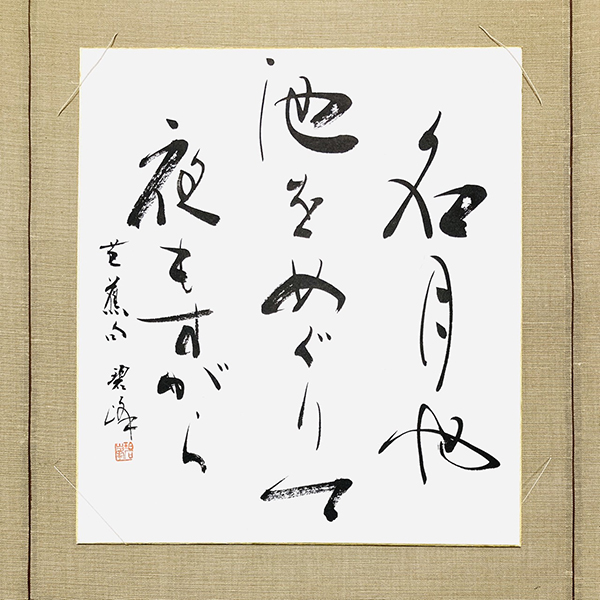 名月や
池をめぐりて
夜もすがら
芭蕉句 碧峰